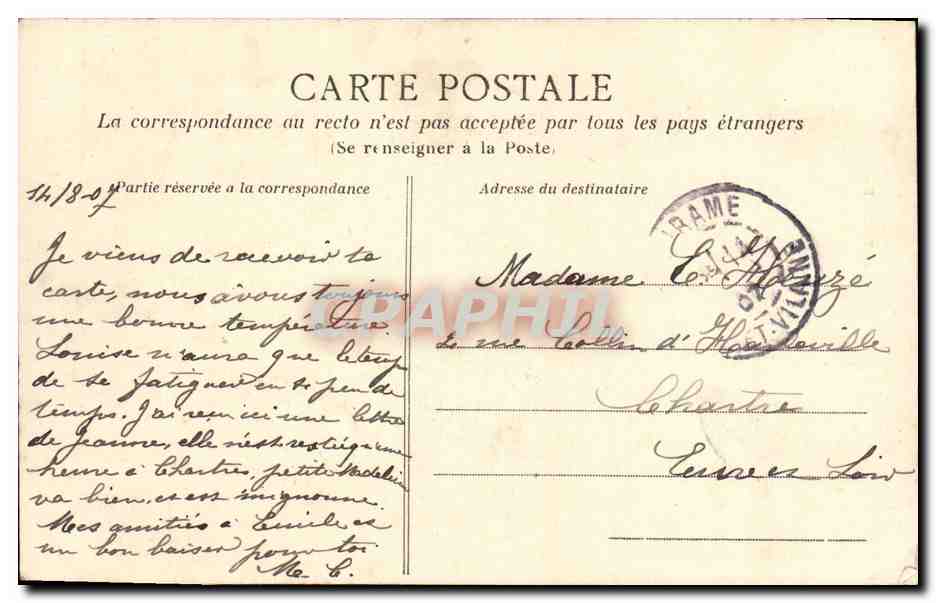 CARTE POSTALE
La correspondance au recto n'est pas acceptée par tous les pays étrangers
(Se renseigner à la Poste)
Partie réservée a la correspondance
14/8-07
Je viens de recevoir ta
carte, nous avons toujours
une bonne température.
Louise n'aura que le temps
de se fatiguer en si peu de
temps. J'ai reçu ici une lettre
de Jeanne, elle n'est restée qu'une
heure à Chartres, petite Madeleine
va bien, et est mignonne.
Mes amitiés à Emile et
un bon baiser pour toi
M. C.
Adresse du destinataire
RAME
ET-VILAINE
Madame E. Houzé
2 rue Collin d'Harleville
Chartre
Eure et Loir
CRAPHIL